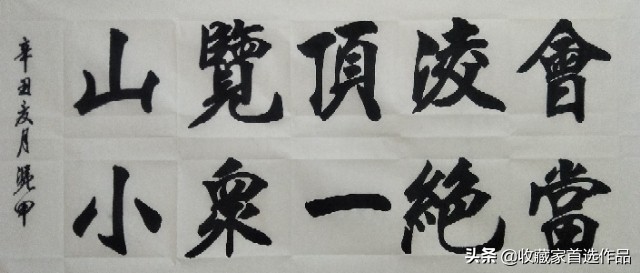 會當
淩絶
頂一
覽衆
山小
辛丑亥月
头条 @收藏家首选作品